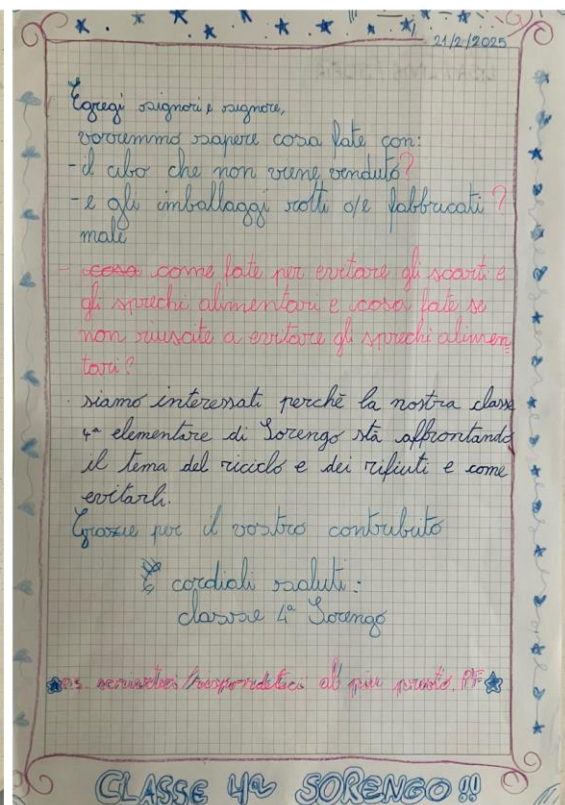 21/2/2025
Egregi signori e signore,
vorremmo sapere cosa fate con:
- il cibo che non viene venduto?
- e gli imballaggi rotti o/e fabbricati ?
male
- cosa come fate per evitare gli scarti e
gli sprechi alimentari e cosa fate se
non riuscite a evitare gli sprechi alimen
tari?
siamo interessati perchè la nostra classe
4ª elementare di Sorengo stà affrontando
il tema del riciclo e dei rifiuti e come
evitarli.
Grazie per il vostro contributo
E cordiali saluti:
classe 4ª Sorengo
P.S. scriveteci/rispondeteci al più presto. PF
CLASSE 4ª SORENGO!!